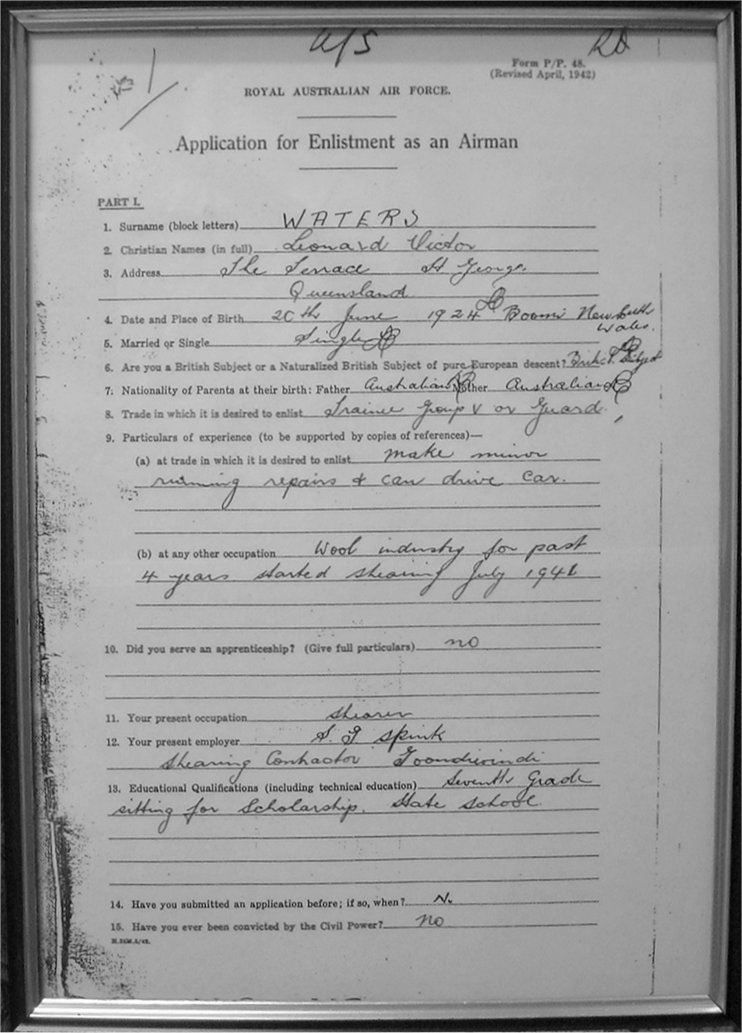 a/s RD
Form P/P. 48.
(Revised April, 1942)
ROYAL AUSTRALIAN AIR FORCE.
Application for Enlistment as an Airman
PART I.
1. Surname (block letters) WATERS
2. Christian Names (in full) Leonard Victor
3. Address The Terrace St George.
Queensland
4. Date and Place of Birth 20th June 1924 Boomi New South
Wales.
5. Married or Single Single
6. Are you a British Subject or a Naturalized British Subject of pure European descent?
7. Nationality of Parents at their birth: Father Australian Mother Australian
8. Trade in which it is desired to enlist Trainee Group V or Guard.
9. Particulars of experience (to be supported by copies of references)—
(a) at trade in which it is desired to enlist make minor
running repairs & can drive car.
(b) at any other occupation Wool industry for past
4 years started shearing July 1941
10. Did you serve an apprenticeship? (Give full particulars) no
11. Your present occupation shearer
12. Your present employer S. J Spink
Shearing Contractor Goondiwindi
13. Educational Qualifications (including technical education) Seventh Grade
sitting for Scholarship. State School.
14. Have you submitted an application before; if so, when? No
15. Have you ever been convicted by the Civil Power? no